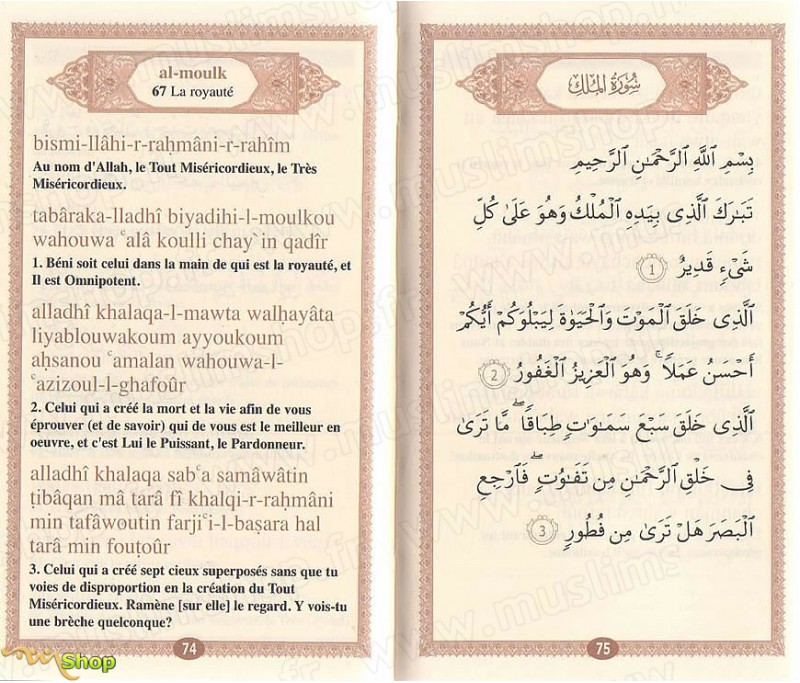 al-moulk
67 La royauté
bismi-llâhi-r-raḥmâni-r-rahîm
Au nom d'Allah, le Tout Miséricordieux, le Très
Miséricordieux.
tabâraka-lladhî biyadihi-l-moulkou
wahouwa ʿalâ koulli chay`in qadîr
1. Béni soit celui dans la main de qui est la royauté, et
Il est Omnipotent.
alladhî khalaqa-l-mawta walḥayâta
liyablouwakoum ayyoukoum
aḥsanou ʿamalan wahouwa-l-
ʿazizoul-l-ghafoûr
2. Celui qui a créé la mort et la vie afin de vous
éprouver (et de savoir) qui de vous est le meilleur en
oeuvre, et c'est Lui le Puissant, le Pardonneur.
alladhî khalaqa sabʿa samâwâtin
ṭibâqan mâ tarâ fî khalqi-r-raḥmâni
min tafâwoutin farjiʿi-l-baṣara hal
tarâ min fouṭoûr
3. Celui qui a créé sept cieux superposés sans que tu
voies de disproportion en la création du Tout
Miséricordieux. Ramène [sur elle] le regard. Y vois-tu
une brèche quelconque?
74
Shop
سُورَةُ المُلْكِ
بِسْمِ ٱللَّهِ ٱلرَّحْمَٰنِ ٱلرَّحِيمِ
تَبَٰرَكَ ٱلَّذِى بِيَدِهِ ٱلْمُلْكُ وَهُوَ عَلَىٰ كُلِّ
شَىْءٍ قَدِيرٌ ١
ٱلَّذِى خَلَقَ ٱلْمَوْتَ وَٱلْحَيَوٰةَ لِيَبْلُوَكُمْ أَيُّكُمْ
أَحْسَنُ عَمَلًا ۚ وَهُوَ ٱلْعَزِيزُ ٱلْغَفُورُ ٢
ٱلَّذِى خَلَقَ سَبْعَ سَمَٰوَٰتٍ طِبَاقًا ۖ مَّا تَرَىٰ
فِى خَلْقِ ٱلرَّحْمَٰنِ مِن تَفَٰوُتٍ ۖ فَٱرْجِعِ
ٱلْبَصَرَ هَلْ تَرَىٰ مِن فُطُورٍ ٣
75
www.muslimshop.fr